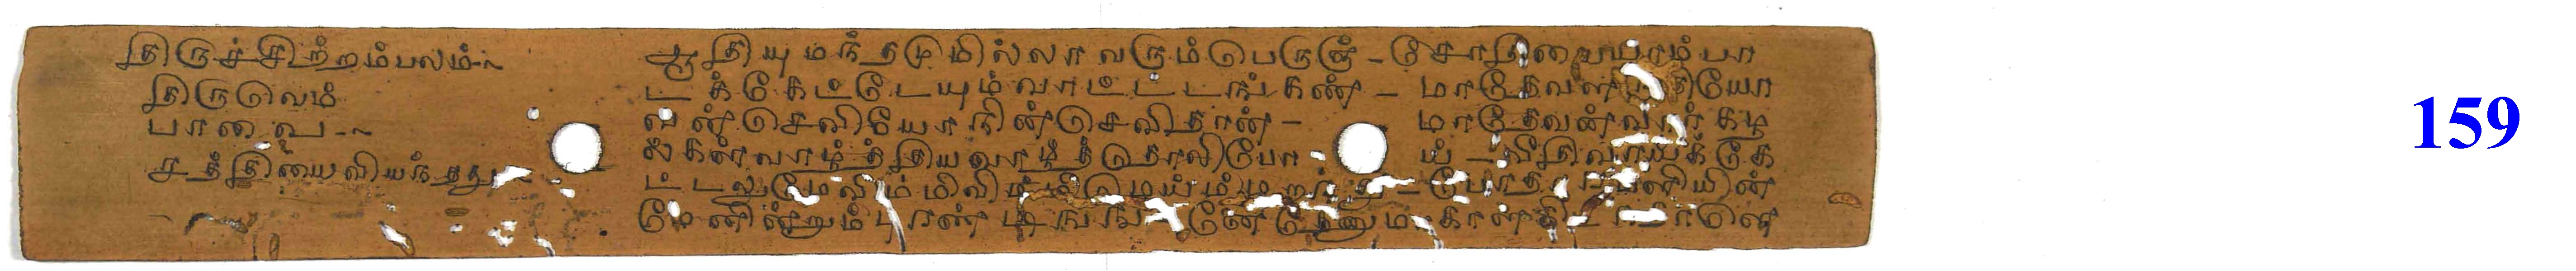 திருச்சிற்றம்பலம்~
திருவெம்
பாவை~
சத்தியைவியந்தது~
ஆதியுமந்தமுமில்லாவரும்பெருஞ் - சோதியையாம்பா
டக்கேட்டேயும்வாட்டடங்கண் - மாதேவளருதியோ
வன்செவியோநின்செவிதான் - மாதேவன்வார்கழ
ல்கள்வாழ்த்தியவாழ்த்தொலிபோய் - வீதிவாய்க்கே
ட்டலுமேவிம்மிவிம்மிமெய்ம்மறந்து - போதாரமளியின்
மேனின்றும்புரண்டிங்ங னேதேனுமாகாள்கிடந்தாளெ
159